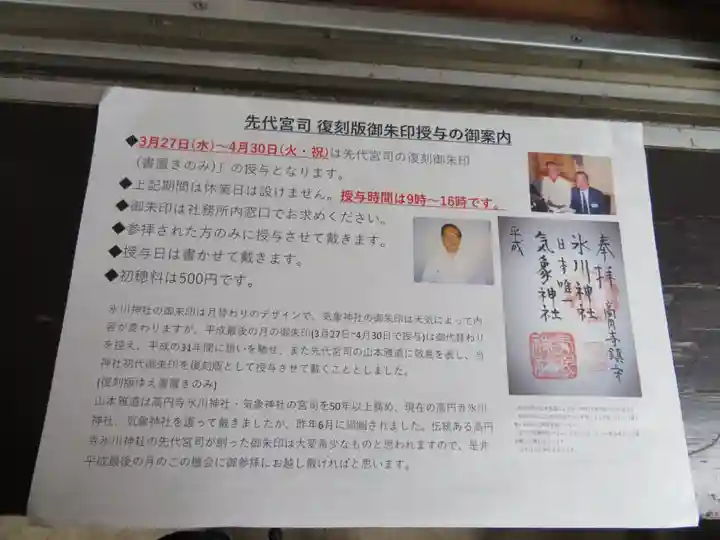 先代宮司 復刻版御朱印授与の御案内
◆3月27日(水)~4月30日(火・祝)は先代宮司の復刻御朱印
(書置きのみ)」の授与となります。
◆上記期間は休業日は設けません。授与時間は9時~16時です。
◆御朱印は社務所内窓口でお求めください。
◆参拝された方のみに授与させて戴きます。
◆授与日は書かせて戴きます。
◆初穂料は500円です。
氷川神社の御朱印は月替わりのデザインで、気象神社の御朱印は天気によって内
容が変わりますが、平成最後の月の御朱印(3月27日~4月30日で授与)は御代替わり
を控え、平成の31年間に想いを馳せ、また先代宮司の山本雅道に敬意を表し、当
神社初代御朱印を復刻版として授与させて戴くこととしました。
(復刻版ゆえ書置きのみ)
山本雅道は高円寺氷川神社・気象神社の宮司を50年以上務め、現在の高円寺氷川
神社、気象神社を護って戴きましたが、昨年6月に帰幽されました。伝統ある高円
寺氷川神社の先代宮司が創った御朱印は大変希少なものと思われますので、是非
平成最後の月のこの機会に御参拝にお越し戴ければと思います。
奉拝 高円寺鎮守
氷川神社
日本唯一
気象神社
平成